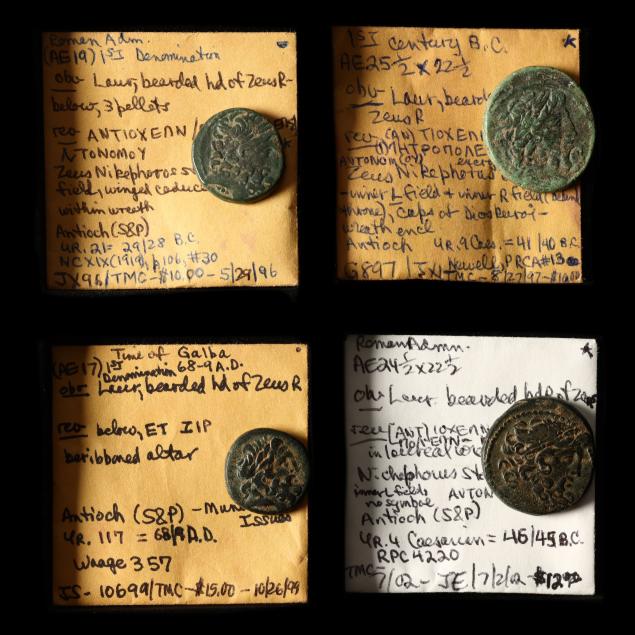 Roman Adm.
(AE19) 1st Denomination
obv Laur, bearded hd of Zeus R-
below, 3 pellets
rev ANTIOXEΩN /
ΝΤΟΝΟΜΟΥ
Zeus Nikephoros s
field, winged caduc
within wreath
Antioch (S&P)
YR. 21 = 29/28 B.C.
NC XIX (1919), p106, #30
JX96/TMC-$10.00-5/29/96
1st century B.C.
AE25½ x 22½
obv Laur, beard
Zeus R
rev (AN)TIOXEΩN
(Μ)ΗΤΡΟΠΟΛΕ
AYTONOM(OY)
Zeus Nikephorus
-inner L field & inner R field
throne), caps of Dioskouroi-
wreath encl
Antioch YR. 9 Caes. = 41/40 B.C.
G897/JX/TMC-8/27/97-$10.00
Newell, PRCA#13
Time of Galba
(AE17) 1st Denomination 68-9 A.D.
obv Laur, bearded hd of Zeus R
rev below, ET ΖΙΡ
beribboned altar
Antioch (S&P) - Mun
Issues
YR. 117 = 68/9 A.D.
Waage 357
JS-10699/TMC-$15.00-10/26/99
Roman Admn.
AE24½ x 22½
obv Laur. bearded hd of Ze
rev (ANT)IOXEΩN
in laurel
Nichephorus
inner L field AYTON
no symbol
Antioch (S&P)
YR. 4 Caesarian = 46/45 B.C.
RPC 4220
TMC-7/02-JE/7/2/02-$12.00